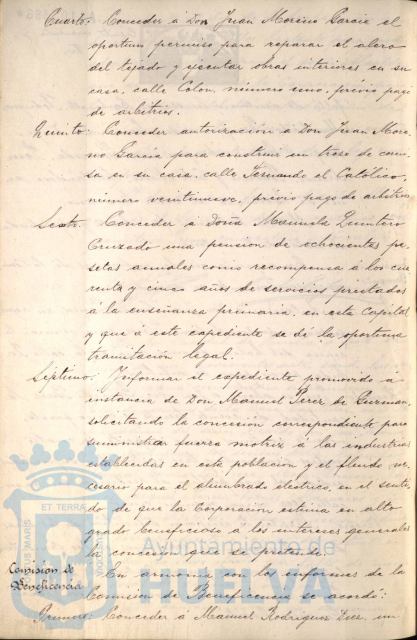 Cuarto: Conceder á Don Juan Moreno Garcia el
oportuno permiso para reparar el alero
del tejado y ejecutar obras interiores en su
casa, calle Colon, número uno, prévio pago
de arbitrios.
Quinto: Conceder autorización á Don Juan More
no Garcia para construir un trozo de corni
sa en su casa, calle Fernando el Católico,
número veintinueve, prévio pago de arbitrios
Sexto: Conceder á Doña Manuela Quintero
Cruzado una pension de ochocientas pe
setas anuales como recompensa á los cua
renta y cinco años de servicios prestados
á la enseñanza primaria, en esta Capital
y que á este expediente se dé la oportuna
tramitación legal.
Séptimo: Informar el expediente promovido á
instancia de Don Manuel Perez de Guzman,
solicitando la concesión correspondiente para
suministrar fuerza motriz á las industrias
establecidas en esta población y el fluido ne
cesario para el alumbrado eléctrico, en el senti
do de que la Corporación estima en alto
grado beneficiosa á los intereses generales
la concesión que se pretende.
Comision de
Beneficencia
En armonia con los informes de la
Comision de Beneficencia se acordó:
Primero: Conceder á Manuel Rodriguez Diez, un
ET TERRÆ
Ayuntamiento de
HUELVA